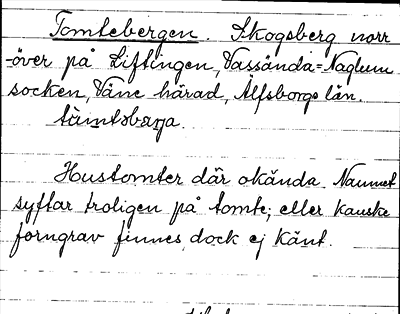 Tomtebergen. Skogsberg norr
-över på Liftingen, Vassända-Naglum
socken, Väne härad, Älfsborgs län.
tàmtsbarja.
Hustomter där okända. Namnet
syftar troligen på tomte; eller kanske
forngrav finnes, dock ej känt.